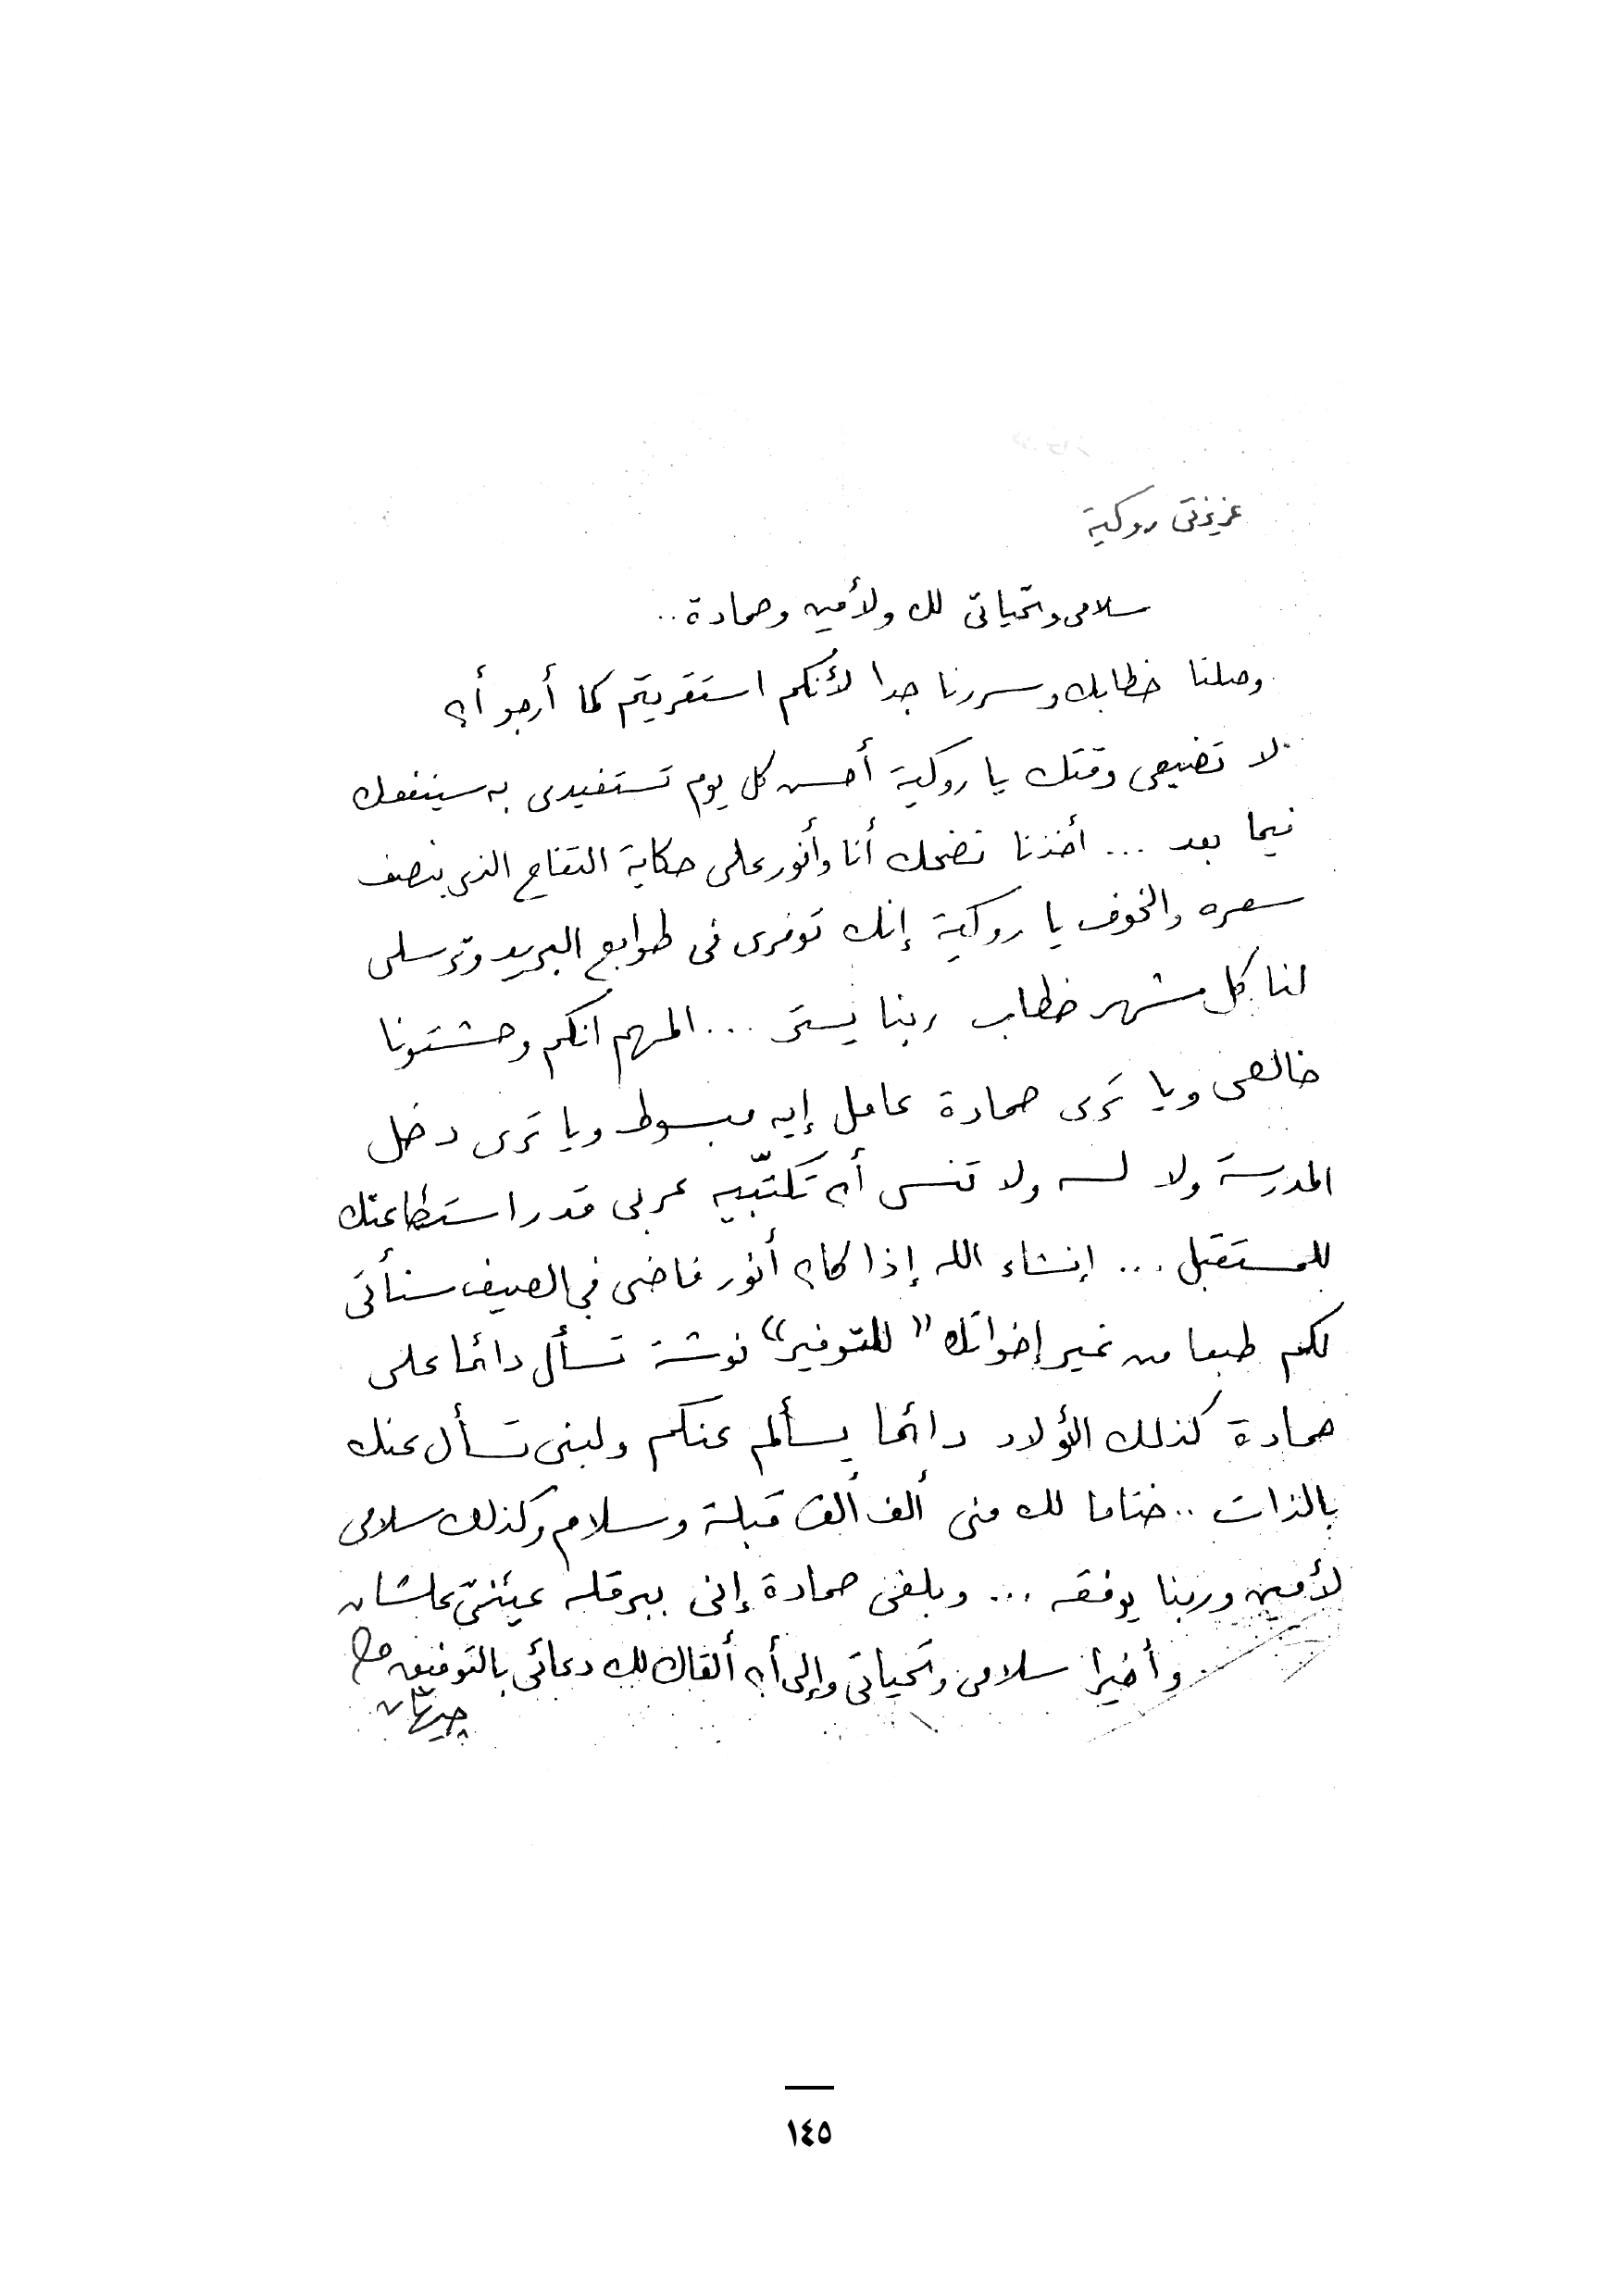 عزيزتى روكية
سلامى وتحياتى لك ولأمين وحمادة..
وصلنا خطابك وسررنا جدا لأنكم استقريتم كما أرجو أن
لا تضيعى وقتك يا روكية أحسن كل يوم تستفيدى به سينفعك
فيما بعد ... أخذنا نضحك أنا وأنور على حكاية التفاح الذى بنصف
سعره والخوف يا روكية إنك توفرى فى طوابع البريد وترسلى
لنا كل شهر خطاب ربنا يستر ... المهم انكم وحشتونا
خالص ويا ترى حمادة عامل إيه مبسوط ويا ترى دخل
المدرسة ولا لسه ولا تنسى أن تكتّبيه عربى قدر استطاعتك
للمستقبل ... إنشاء الله إذا كان أنور فاضى فى الصيف سنأتى
لكم طبعا من غير إخواتك "للتوفير" نوشة تسأل دائما على
حمادة كذلك الأولاد دائما يسألم عنكم ولبنى تسأل عنك
بالذات .. ختاما لك منى ألف ألف قبلة وسلام وكذلك سلامى
لأمين وربنا يوفقه ... وبلغى حمادة إنى ببرقله عينىّ علشان
وأخيرا سلامى وتحياتى وإلى أن ألقاك لك دعائى بالتوفيق
جيهان
١٤٥